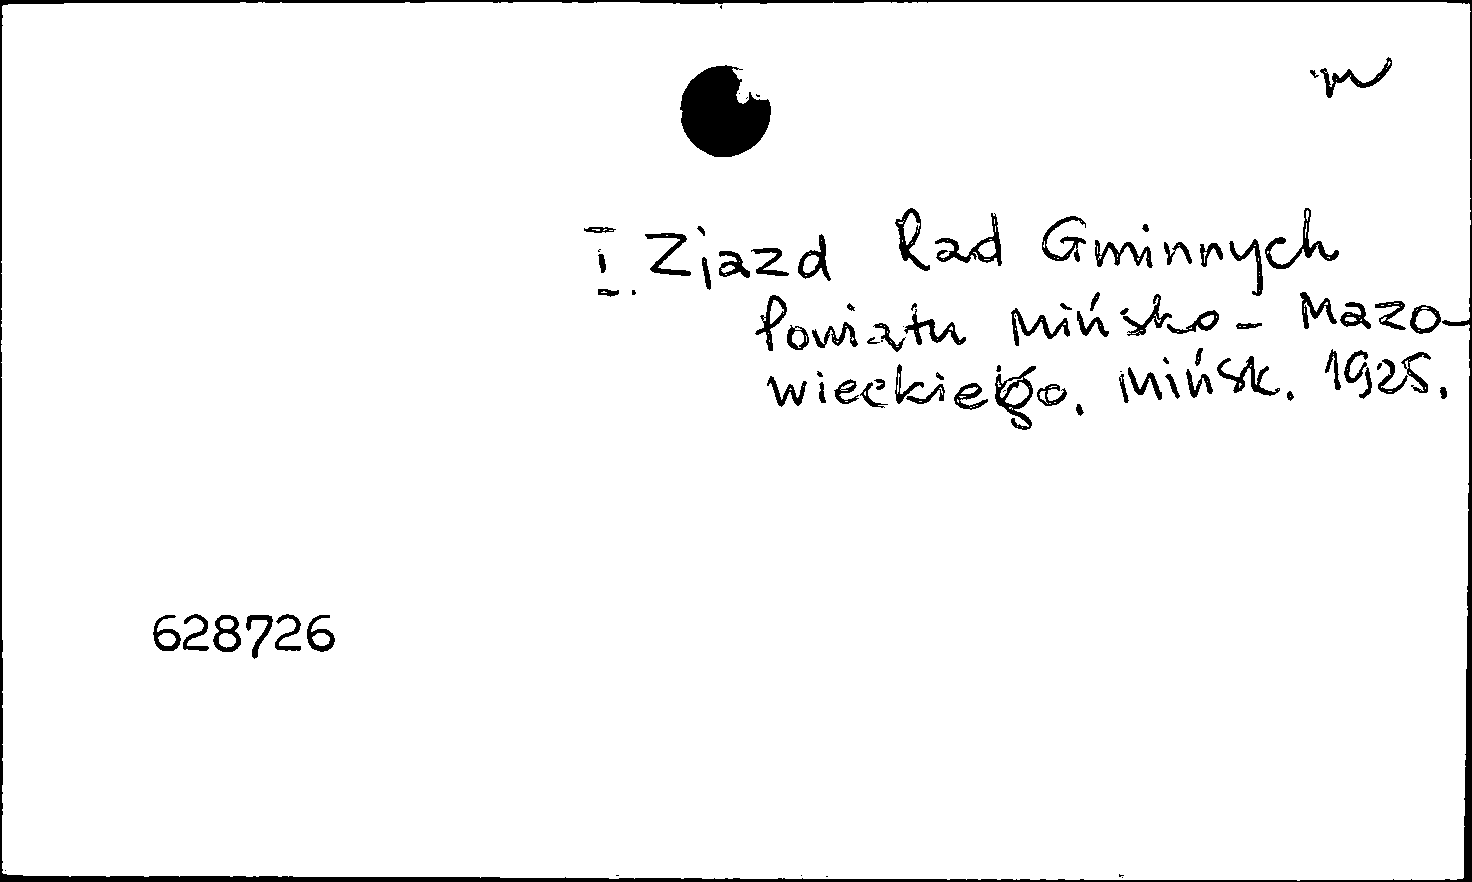 I. Zjazd Rad Gminnych
Powiatu Mińsko-Mazo-
wieckiego. Mińsk. 1925.
628726